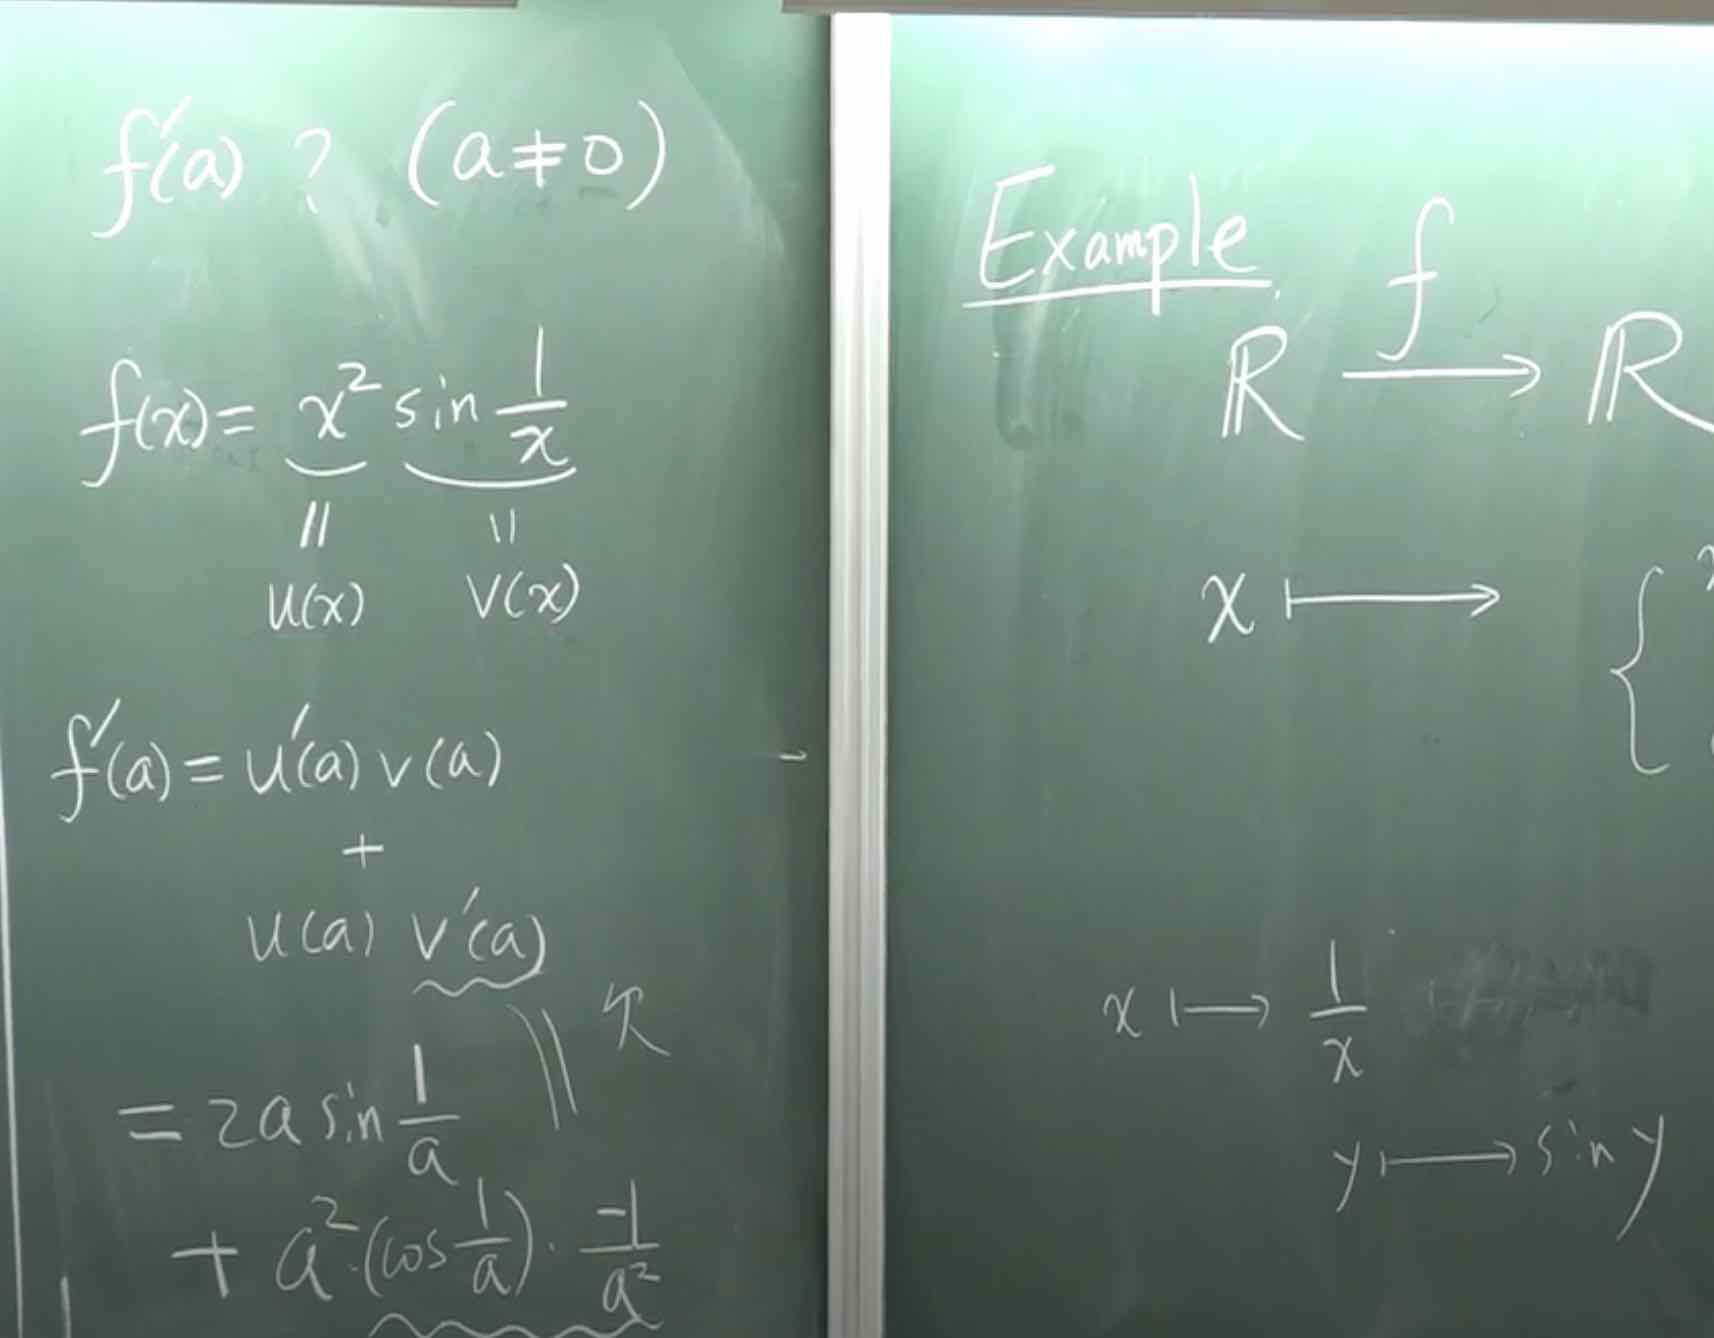 f'(a) ? (a≠0)
f(x) = x² sin 1/x
|| ||
u(x) v(x)
f'(a) = u'(a) v(a)
+
u(a) v'(a)
||
= 2a sin 1/a
+ a²·(cos 1/a)· -1/a²
Example
f
ℝ ⟶ ℝ
x ⟼ {
x ⟼ 1/x
y ⟼ sin y